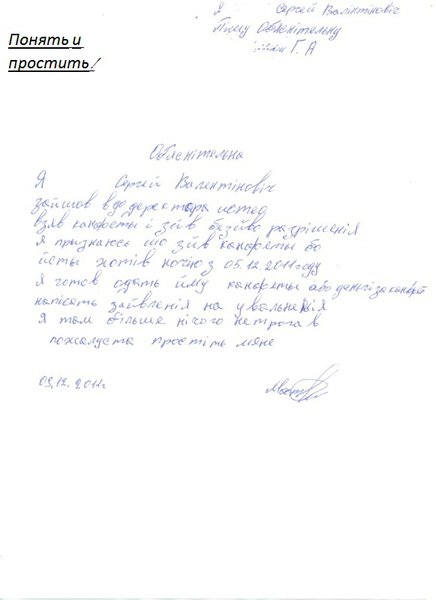 Понять и
простить!
Я Сергей Валінтіновіч
Пішу Обяснітельну
Г. А
Обяснітельна
Я Сергей Валентіновіч
зайшов вдодеректора
взяв канфеты і зїів безйво разрішенія
Я признаюсь шо зїів канфеты бо
їсты хотів ночію з 05.12.2011 году
Я готов одать йму канфеты або деньгі за канфеті
напісать заявленія на увальненія
Я там більше нічого нетрогав
пожалуста простіть мене
09.12.2011г